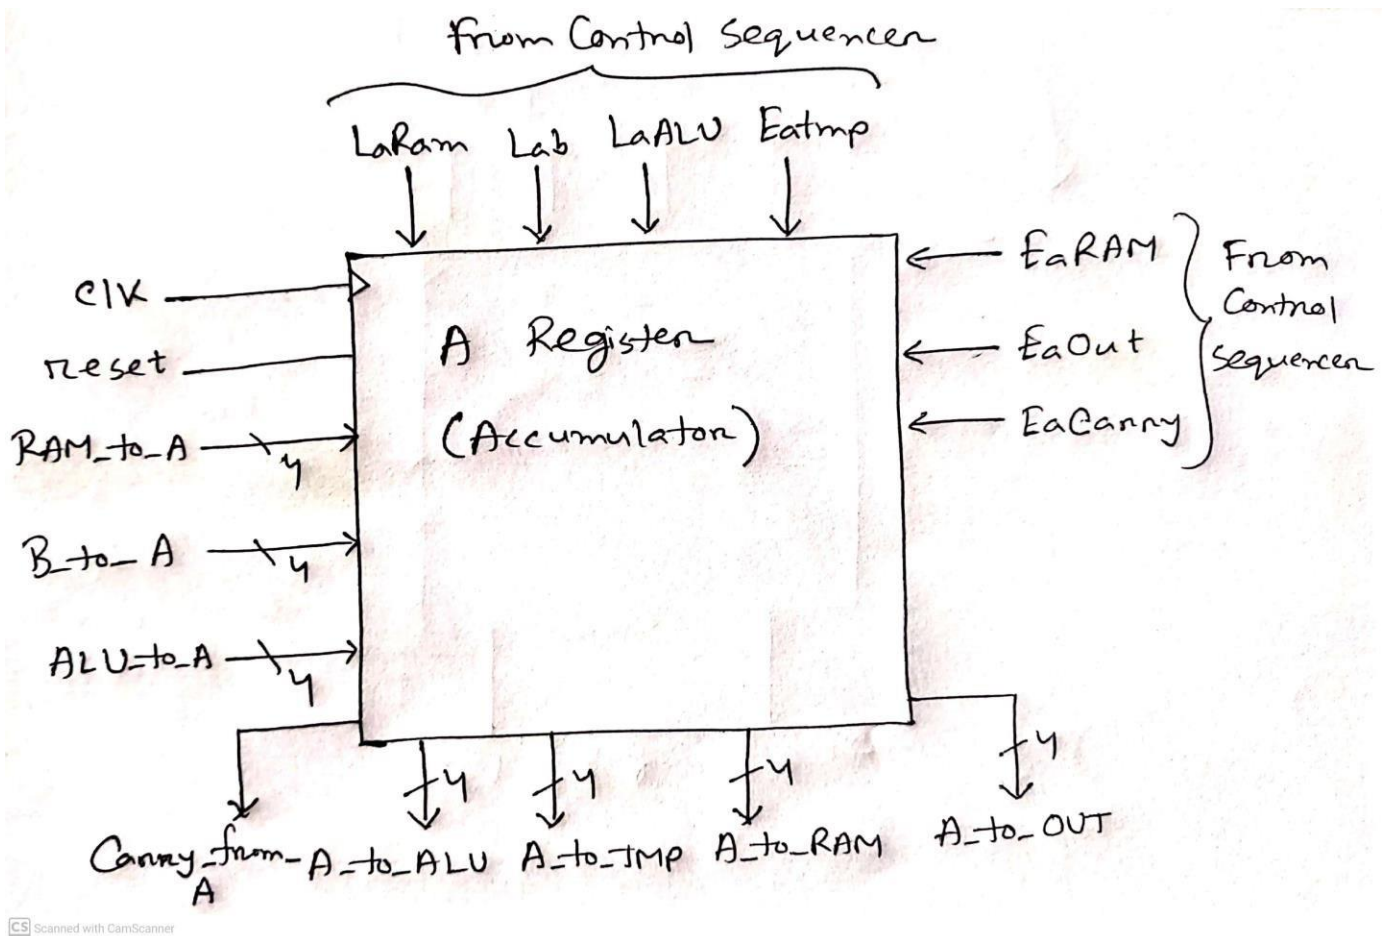 From Control Sequencer
LaRam Lab LaALU Eatmp
Clk
reset
RAM_to_A 4
B_to_A 4
ALU_to_A 4
A Register
(Accumulator)
EaRAM
EaOut
EaCarry
From
Control
Sequencer
4 4 4 4
Carry_from_
A
A_to_ALU A_to_TMP A_to_RAM A_to_OUT
CS Scanned with CamScanner